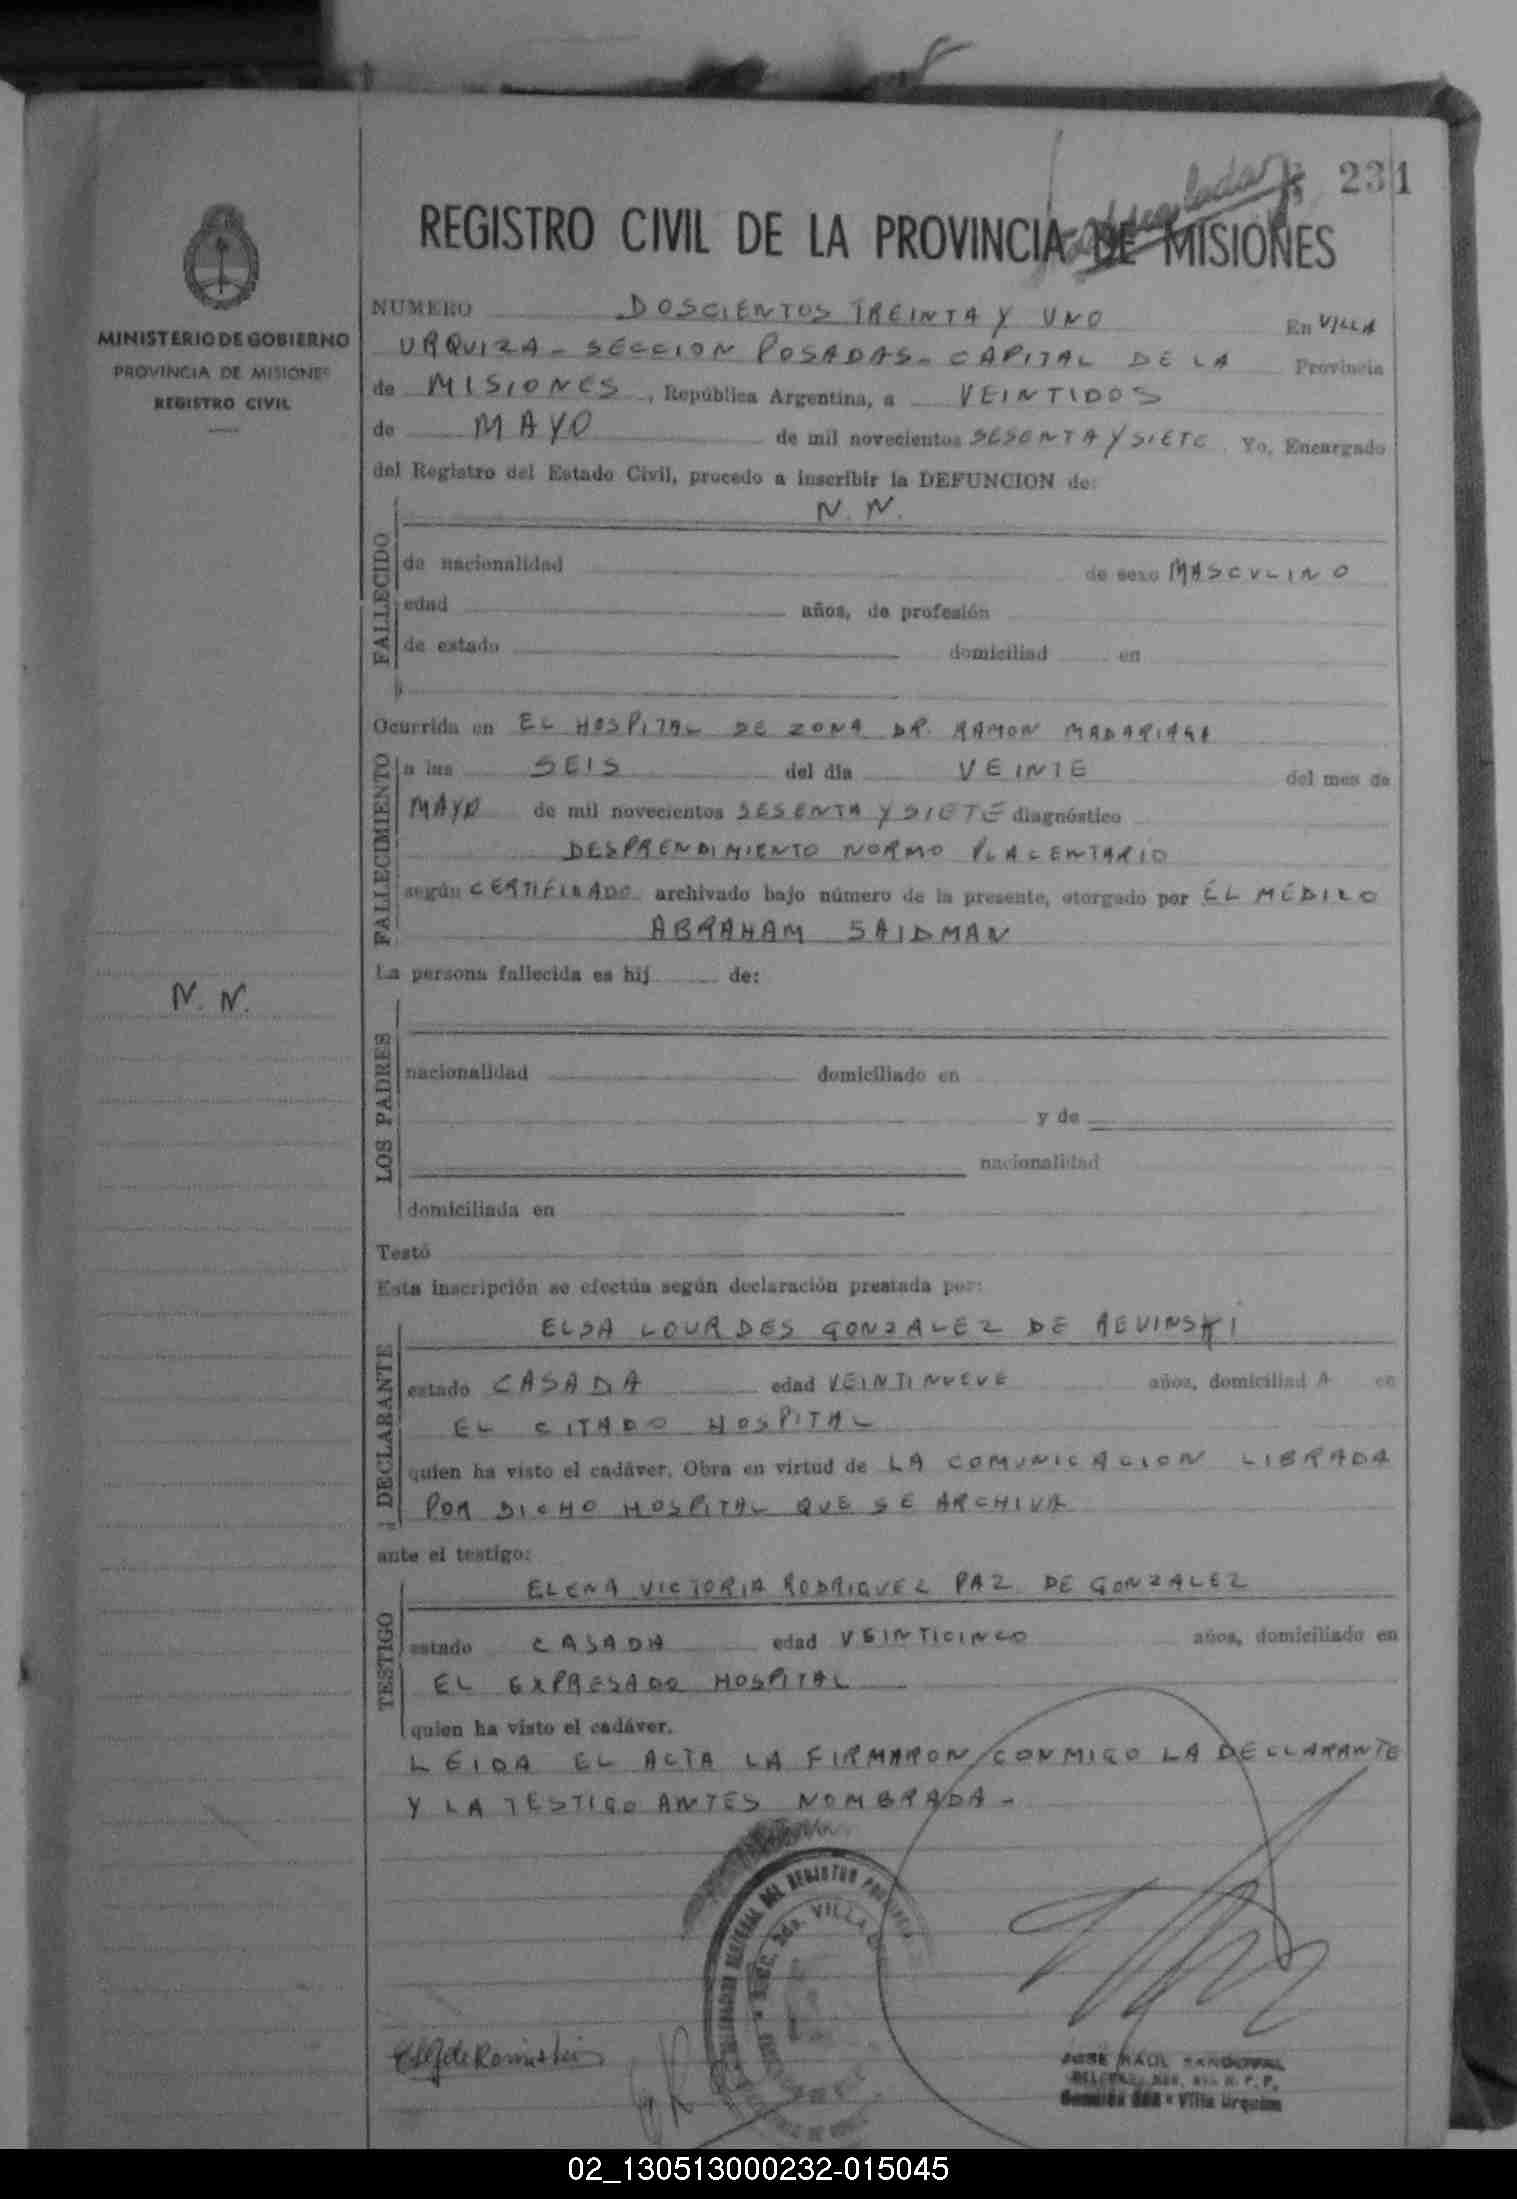 231
REGISTRO CIVIL DE LA PROVINCIA DE MISIONES
MINISTERIO DE GOBIERNO
PROVINCIA DE MISIONES
REGISTRO CIVIL
NUMERO DOSCIENTOS TREINTA Y UNO En VILLA
URQUIZA - SECCION POSADAS - CAPITAL DE LA Provincia
de MISIONES, República Argentina, a VEINTIDOS
de MAYO de mil novecientos SESENTA Y SIETE. Yo, Encargado
del Registro del Estado Civil, procedo a inscribir la DEFUNCION de:
N. N.
FALLECIDO
de nacionalidad de sexo MASCULINO
edad años, de profesión
de estado domiciliad en
Ocurrida en EL HOSPITAL DE ZONA DR. RAMON MADARIAGA
FALLECIMIENTO
a las SEIS del día VEINTE del mes de
MAYO de mil novecientos SESENTA Y SIETE diagnóstico
DESPRENDIMIENTO NORMO PLACENTARIO
según CERTIFICADO archivado bajo número de la presente, otorgado por EL MÉDICO
ABRAHAM SAIDMAN
La persona fallecida es hij de:
N. N.
LOS PADRES
nacionalidad domiciliado en
y de
nacionalidad
domiciliada en
Testó
Esta inscripción se efectúa según declaración prestada por:
ELSA LOURDES GONZALEZ DE REVINSKI
DECLARANTE
estado CASADA edad VEINTINUEVE años, domiciliad A en
EL CITADO HOSPITAL
quien ha visto el cadáver. Obra en virtud de LA COMUNICACION LIBRADA
POR DICHO HOSPITAL QUE SE ARCHIVA
ante el testigo:
ELENA VICTORIA RODRIGUEZ PAZ DE GONZALEZ
TESTIGO
estado CASADA edad VEINTICINCO años, domiciliado en
EL EXPRESADO HOSPITAL
quien ha visto el cadáver.
LEIDA EL ACTA LA FIRMARON CONMIGO LA DECLARANTE
Y LA TESTIGO ANTES NOMBRADA -
DEL REGISTRO
SECC. 2da. VILLA
JOSE RAUL SANDOVAL
Sección 2da - Villa Urquiza
02_130513000232-015045